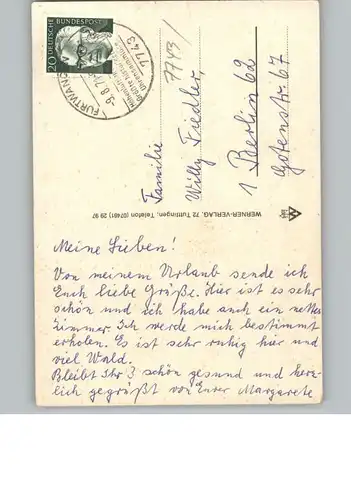 20 DEUTSCHE BUNDESPOST
7743
FURTWANGEN
-9.8.71
7743/
Familie
Willy Fiedler,
1 Berlin 62
Gotenstr. 67
WERNER-VERLAG, 72 Tuttlingen, Telefon (07461) 29 97
Meine Lieben!
Von meinem Urlaub sende ich
Euch liebe Grüße. Hier ist es sehr
schön und ich habe auch ein nettes
Zimmer. Ich werde mich bestimmt
erholen. Es ist sehr ruhig hier und
viel Wald.
Bleibt Ihr 3 schön gesund und herz-
lich gegrüßt von Eurer Margarete